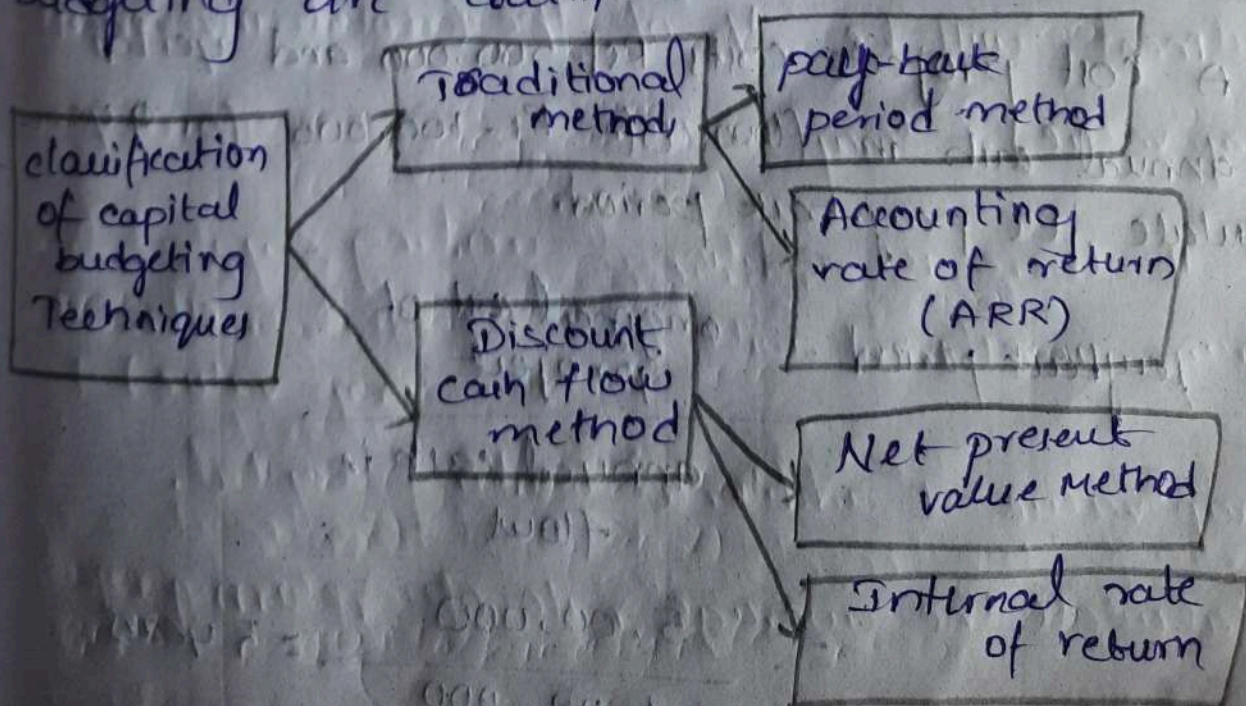 classification
of capital
budgeting
Techniques
Traditional
method
pay-back
period method
Accounting
rate of return
(ARR)
Discount
cash flow
method
Net present
value Method
Internal rate
of return